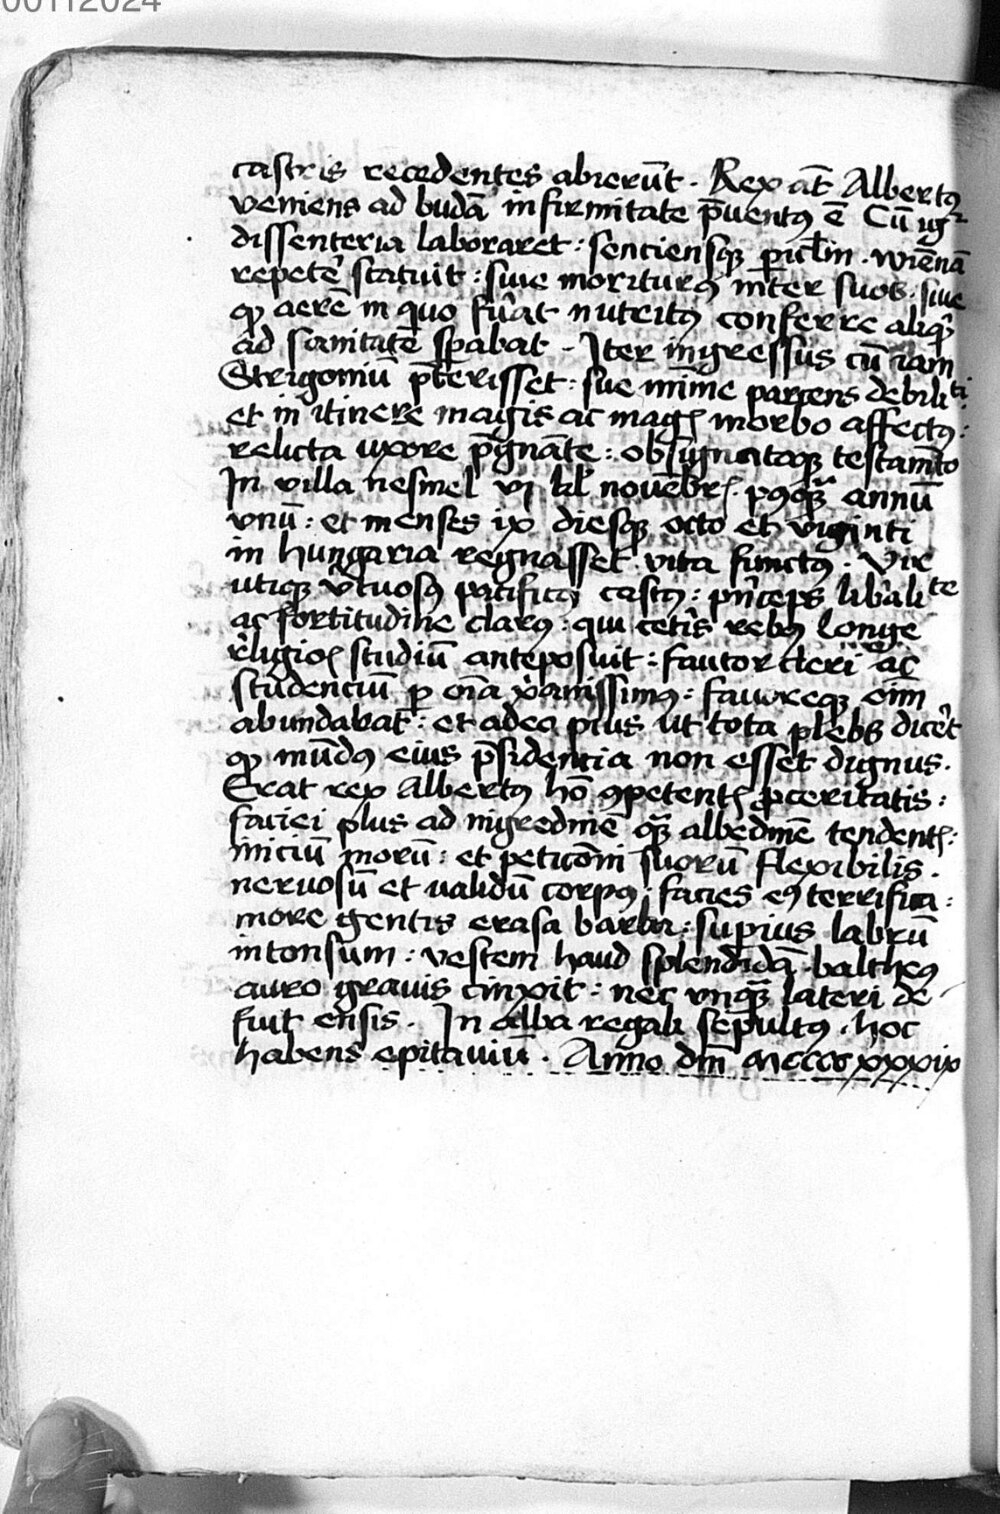 00112024
castris recedentes abierūt. Rex at̄ Albertꝰ
veniens ad budā infirmitate p̄uentꝰ ē Cū igͬ
dissenteria laboraret : senciensqꝫ ꝑicl̄m . wiēnā
repetē statuit : siue moriturꝰ inter suos . siue
ꝙ aerē in quo fūat nutritꝰ conferre aliqͥd
ad sanitatē sꝑabat . Iter ingressus cū iam
Strigoniū p̄terisset : sue mīme parcens debiliti
et in itinere magis ac magꝭ morbo affectꝰ :
relicta uxore p̄gnāte : obsignataqꝫ testam̄to
In villa nesmel vi kl̄ nouēbrꝭ . pꝰqꝫ̄ annū
vnū : et menses ix diesqꝫ octo et viginti
in hungaria regnasset vita functꝰ . Vir
utiqꝫ v̄tuosꝰ pacificꝰ castꝰ : pn̄ceps lib̄alite
ac fortitudine clarꝰ : qui cet̄is rebꝰ longe
r̄ligioꝭ studiū anteposuit : fautor cleri ac
studenciū ꝑ oīa xp̄anissimꝰ : fauoreqꝫ eīm
abundabat : et adeo pius ut tota plebs dic̄et
ꝙ mūdꝰ eius p̄sidentia non esset dignus .
Erat rex Albertꝰ hō ꝯpetentꝭ ꝓceritatis :
faciei plus ad nigredinē qꝫ̄ albedinē tendentꝭ :
miciū morū : et peticōni suorū flexibilis .
neruosū et validū corpꝰ . facies eꝰ terrifica :
more gentis erasa barba : supius labrū
intonsum : vestem haud splendidā . baltheꝰ
auro grauis cinxit : nec vnqꝫ̄ lateri de
fuit ensis . In alba regali sepultꝰ . hoc
habens epitauiū . Anno dn̄i Mccccxxxix